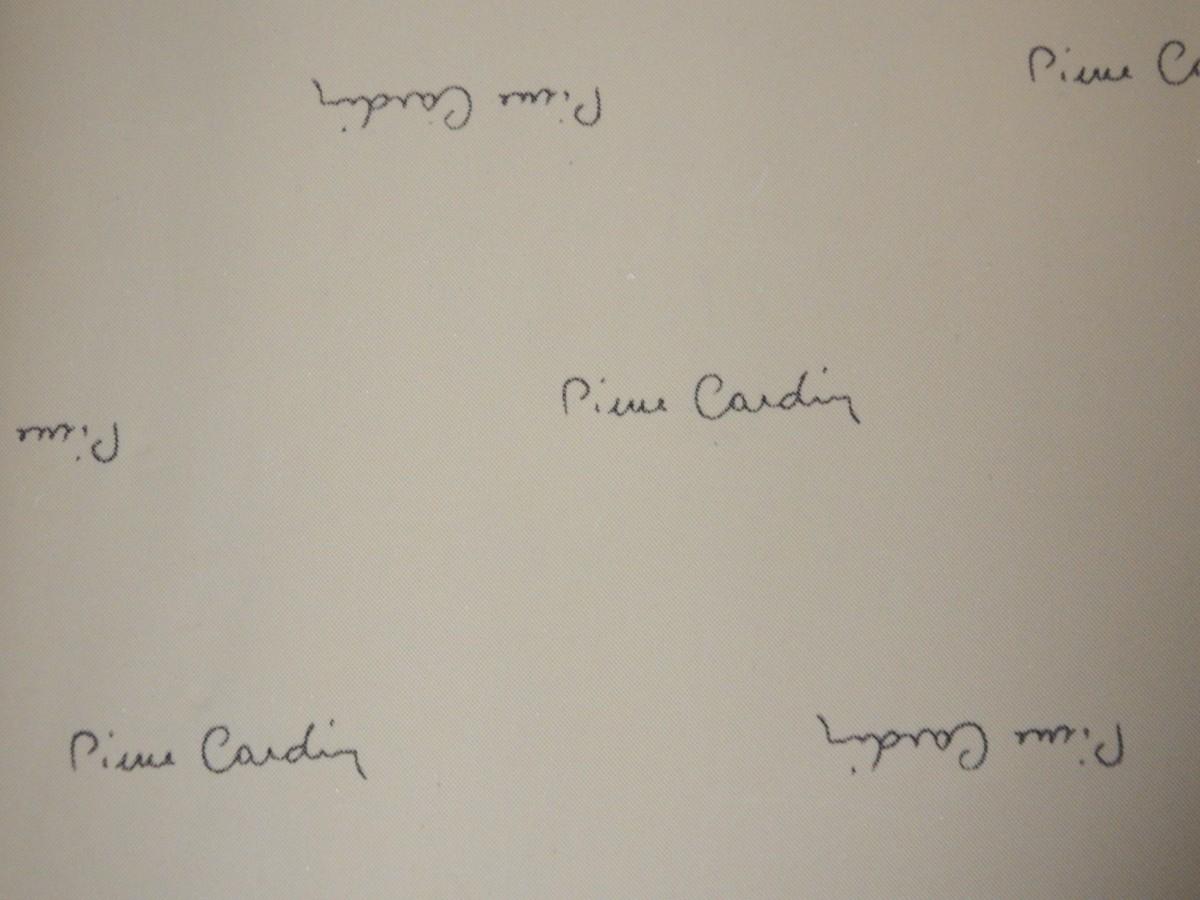 Pierre Ca
Pierre Cardin
Pierre Cardin
Pierre
Pierre Cardin
Pierre Cardin